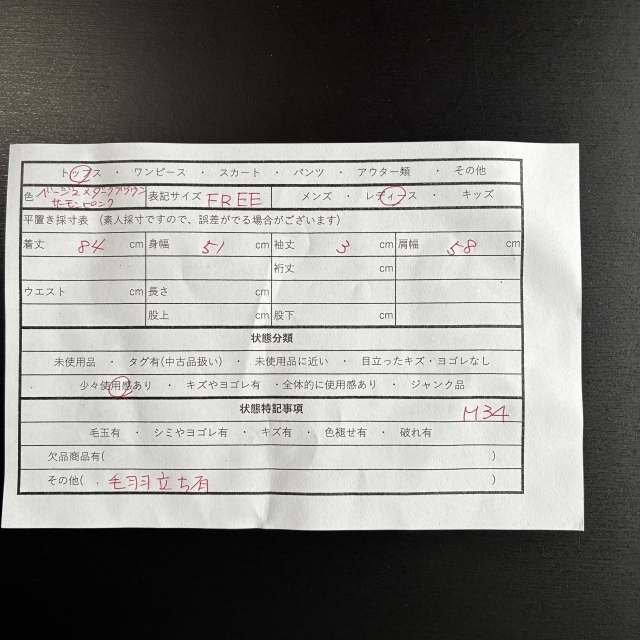 トップス ・ ワンピース ・ スカート ・ パンツ ・ アウター類 ・ その他
色 ベージュ×ダークブラウン サーモンピンク 表記サイズ FREE メンズ ・ レディース ・ キッズ
平置き採寸表 (素人採寸ですので、誤差がでる場合がございます)
着丈 84 cm 身幅 51 cm 袖丈 3 cm 肩幅 58 cm
裄丈 cm
ウエスト cm 長さ cm
股上 cm 股下 cm
状態分類
未使用品 ・ タグ有(中古品扱い) ・ 未使用品に近い ・ 目立ったキズ・ヨゴレなし
少々使用感あり ・ キズやヨゴレ有 ・全体的に使用感あり ・ ジャンク品
状態特記事項 M34
毛玉有 ・ シミやヨゴレ有 ・ キズ有 ・ 色褪せ有 ・ 破れ有
欠品商品有( )
その他( ・毛羽立ち有 )